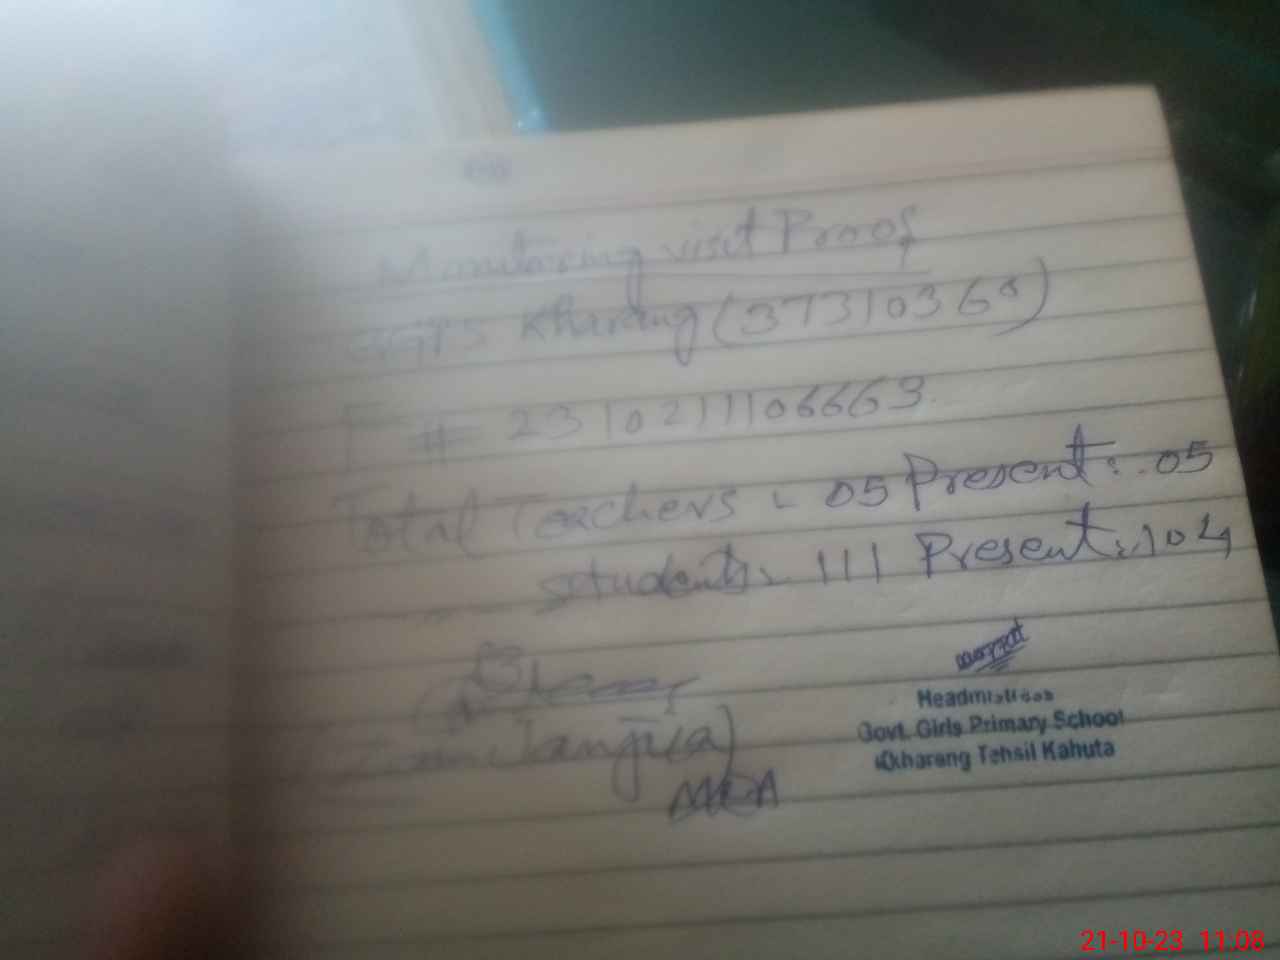 Monitoring visit Proof
GGPS Kharang (37310369)
F# 2310211106663
Total Teachers : 05 Present : 05
" students : 111 Present : 104
Janjua)
MEA
Headmistress
Govt. Girls Primary School
Kharang Tehsil Kahuta
21-10-23 11:08